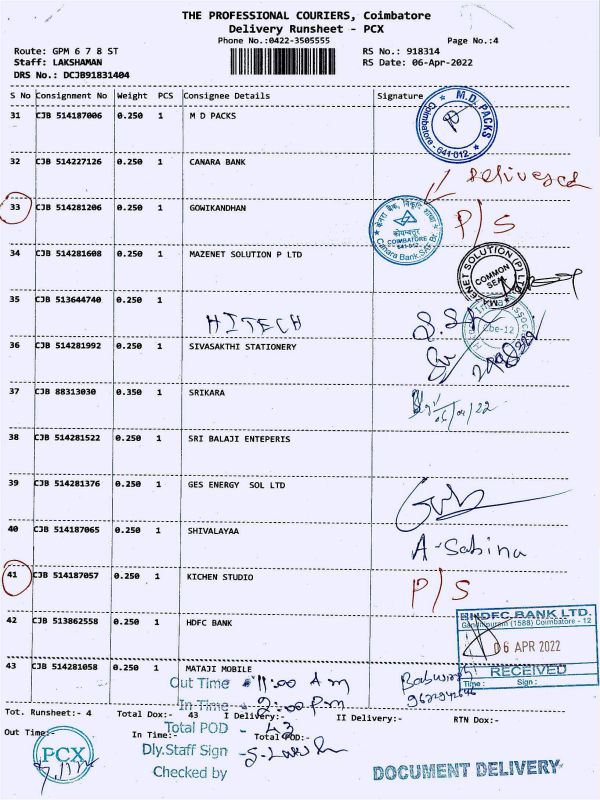 THE PROFESSIONAL COURIERS, Coimbatore
Delivery Runsheet - PCX
Phone No.:0422-3505555
Page No.:4
Route: GPM 6 7 8 ST
RS No.: 918314
Staff: LAKSHAMAN
RS Date: 06-Apr-2022
DRS No.: DCJB91831404
S No Consignment No Weight PCS Consignee Details Signature
31 CJB 514187006 0.250 1 M D PACKS
M.D. PACKS
Coimbatore - 641 012.
32 CJB 514227126 0.250 1 CANARA BANK
Delivered
33 CJB 514281206 0.250 1 GOWIKANDHAN P/S
कोयम्बत्तूर
COIMBATORE
641 012
Canara Bank
34 CJB 514281608 0.250 1 MAZENET SOLUTION P LTD
MAZENET SOLUTION (P) LTD
COMMON
SEAL
35 CJB 513644740 0.250 1
HITECH
Cbe-12
36 CJB 514281992 0.250 1 SIVASAKTHI STATIONERY
37 CJB 88313030 0.350 1 SRIKARA
38 CJB 514281522 0.250 1 SRI BALAJI ENTEPERIS
39 CJB 514281376 0.250 1 GES ENERGY SOL LTD
40 CJB 514187065 0.250 1 SHIVALAYAA
A-Sabina
41 CJB 514187057 0.250 1 KICHEN STUDIO P/S
42 CJB 513862558 0.250 1 HDFC BANK
HDFC BANK LTD.
Gandhipuram (1588) Coimbatore - 12
06 APR 2022
RECEIVED
Time : Sign :
43 CJB 514281058 0.250 1 MATAJI MOBILE
Out Time - 11:00 Am
In Time - 2:00 Pm
Tot. Runsheet:- 4 Total Dox:- 43 I Delivery:- II Delivery:- RTN Dox:-
Total POD - 43
Out Time:- In Time:- Total POD:-
PCX
Dly.Staff Sign -
Checked by
DOCUMENT DELIVERY